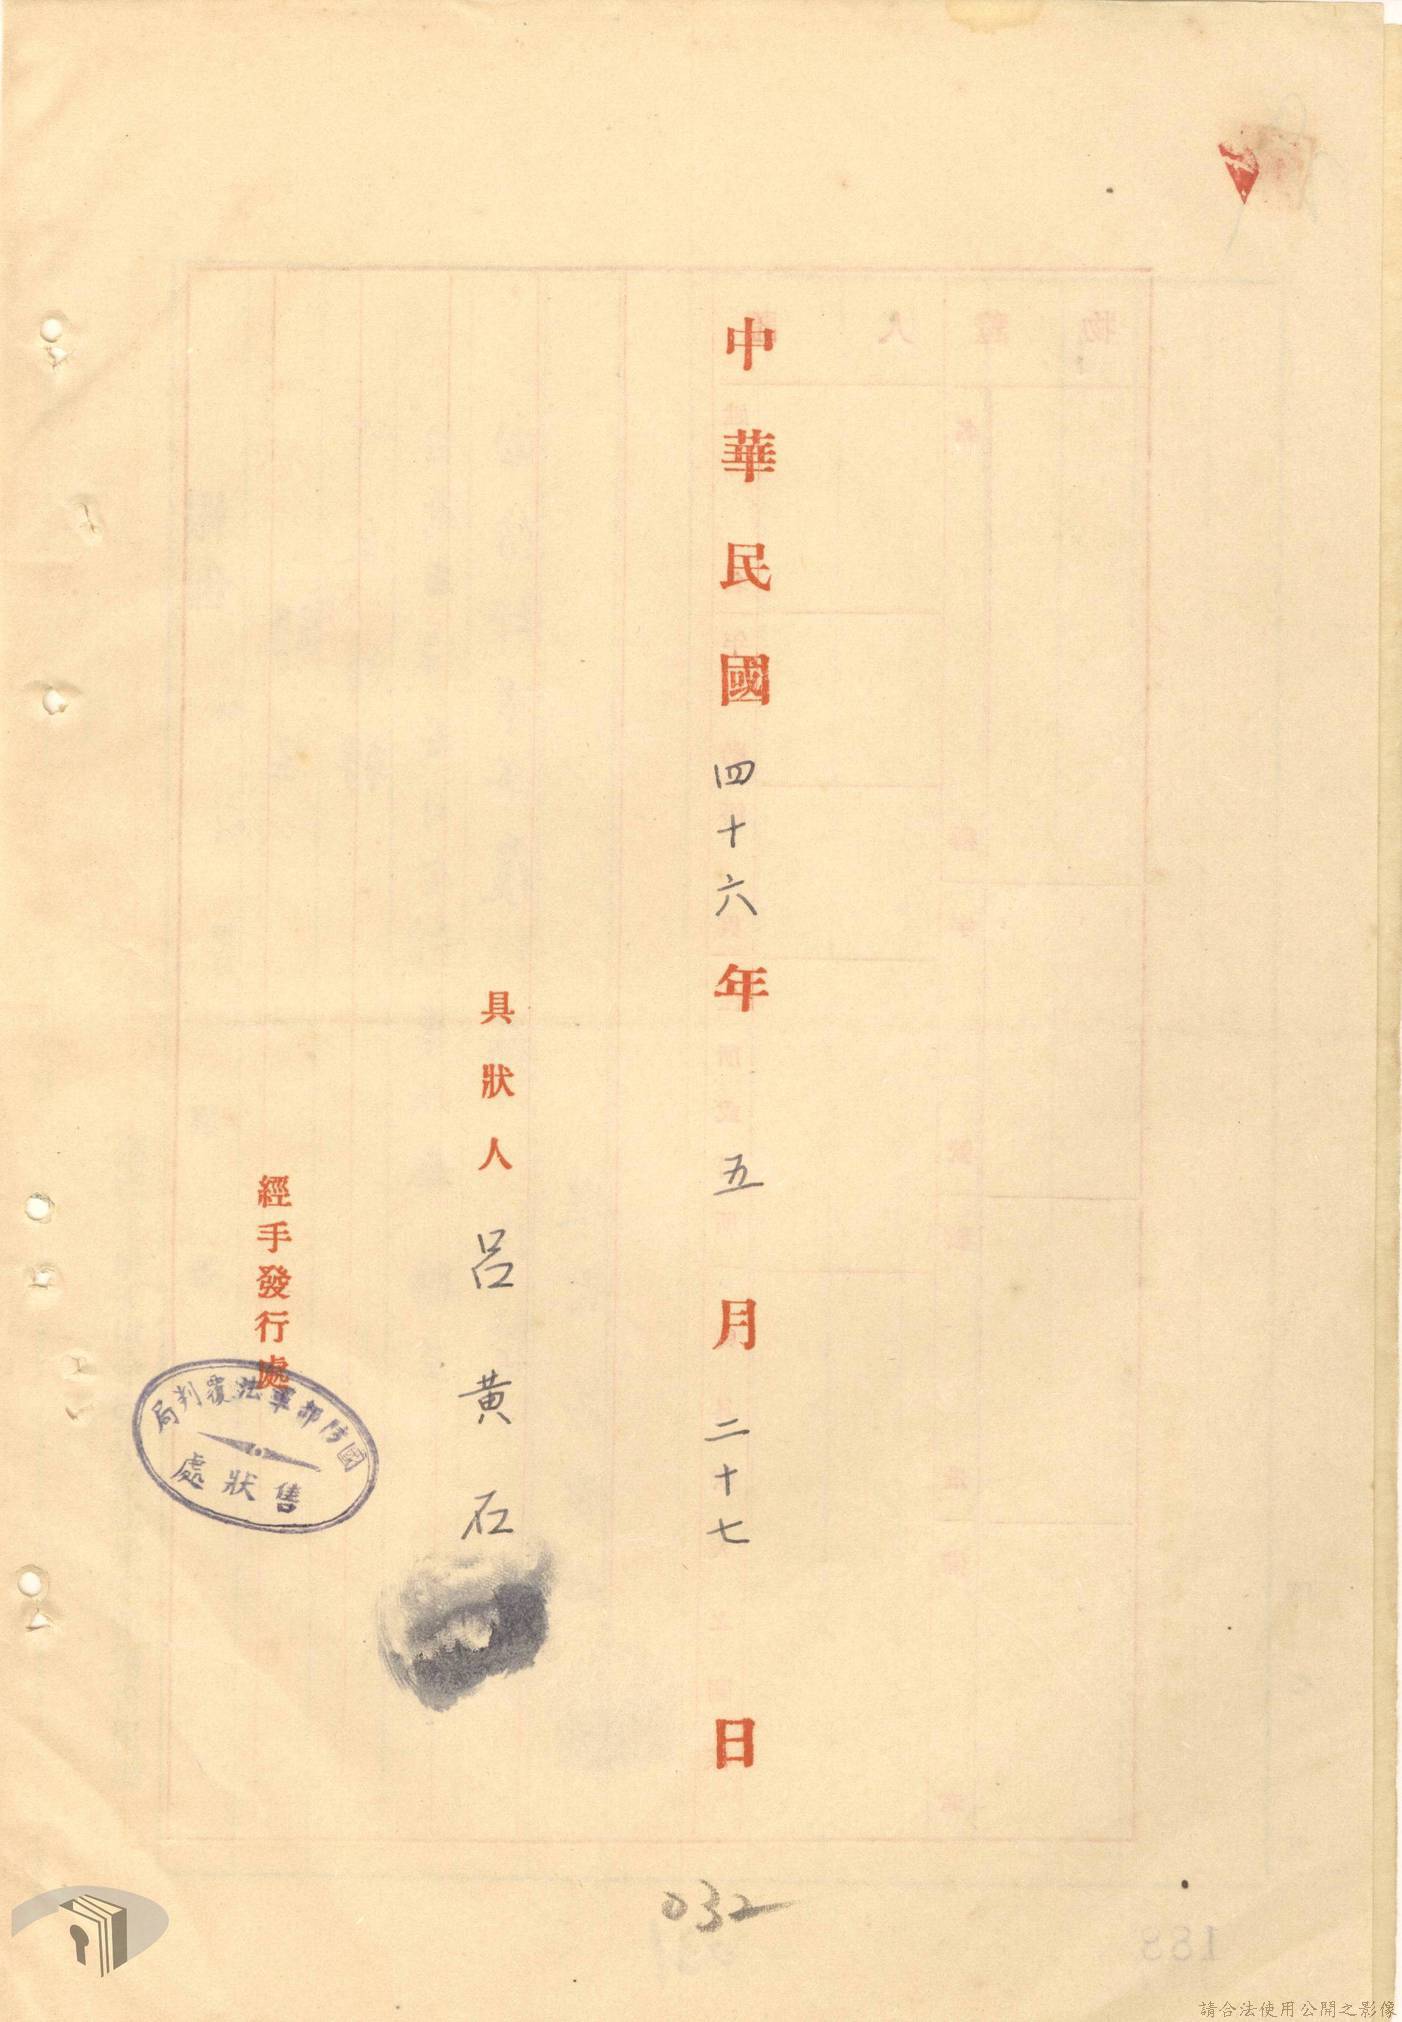 中華民國四十六年五月二十七日
具狀人 呂黃石
經手發行處
國防部軍法覆判局
售狀處
032
183
請合法使用公開之影像